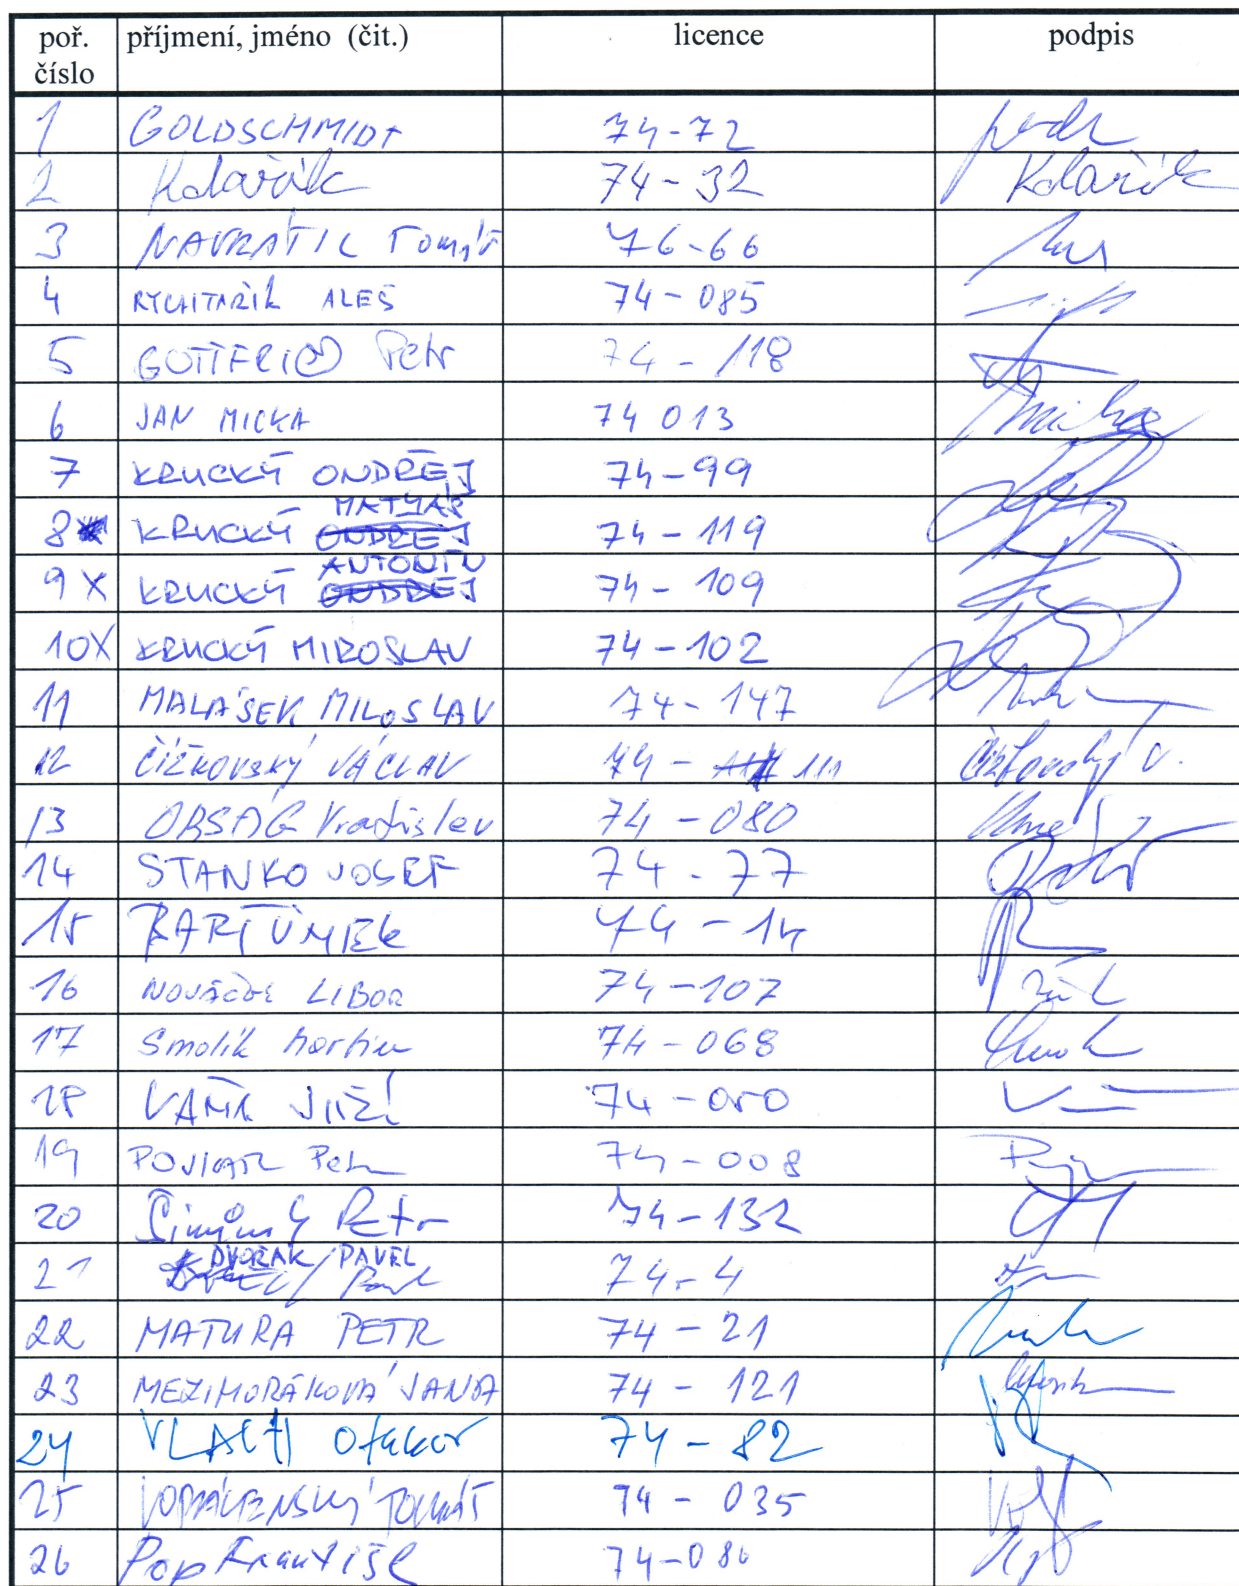 poř. číslo příjmení, jméno (čit.) licence podpis
1 GOLDSCHMIDT 74-72
2 Kolařík 74-32 Kolařík
3 NAVRÁTIL Tomáš 76-66
4 RYCHTAŘÍK ALEŠ 74-085
5 GOTTFRIED Petr 74-118
6 JAN MICKA 74 013 Micka
7 KRUCKÝ ONDŘEJ 74-99
MATYÁŠ
8 KRUCKÝ ONDŘEJ 74-119
ANTONÍN
9 X KRUCKÝ ONDŘEJ 74-109
10X KRUCKÝ MIROSLAV 74-102
11 MALÁŠEK MILOSLAV 74-147
12 ČÍŽKOVSKÝ VÁCLAV 74- 111 Čížkovský V.
13 OBSAG Vratislav 74-080
14 STANKO JOSEF 74-77
15 BARTUNEK 74-14
16 NOVÁČEK LIBOR 74-107
17 Smolík Martin 74-068
18 VAŇA JIŘÍ 74-050
19 Petr 74-008
20 Petr 74-132
DVOŘÁK PAVEL
21 74-4
22 MATURA PETR 74-21
23 MEZIHORÁKOVÁ JANA 74-121
24 Otakar 74-82
25 TOMÁŠ 74-035
26 Pop František 74-086